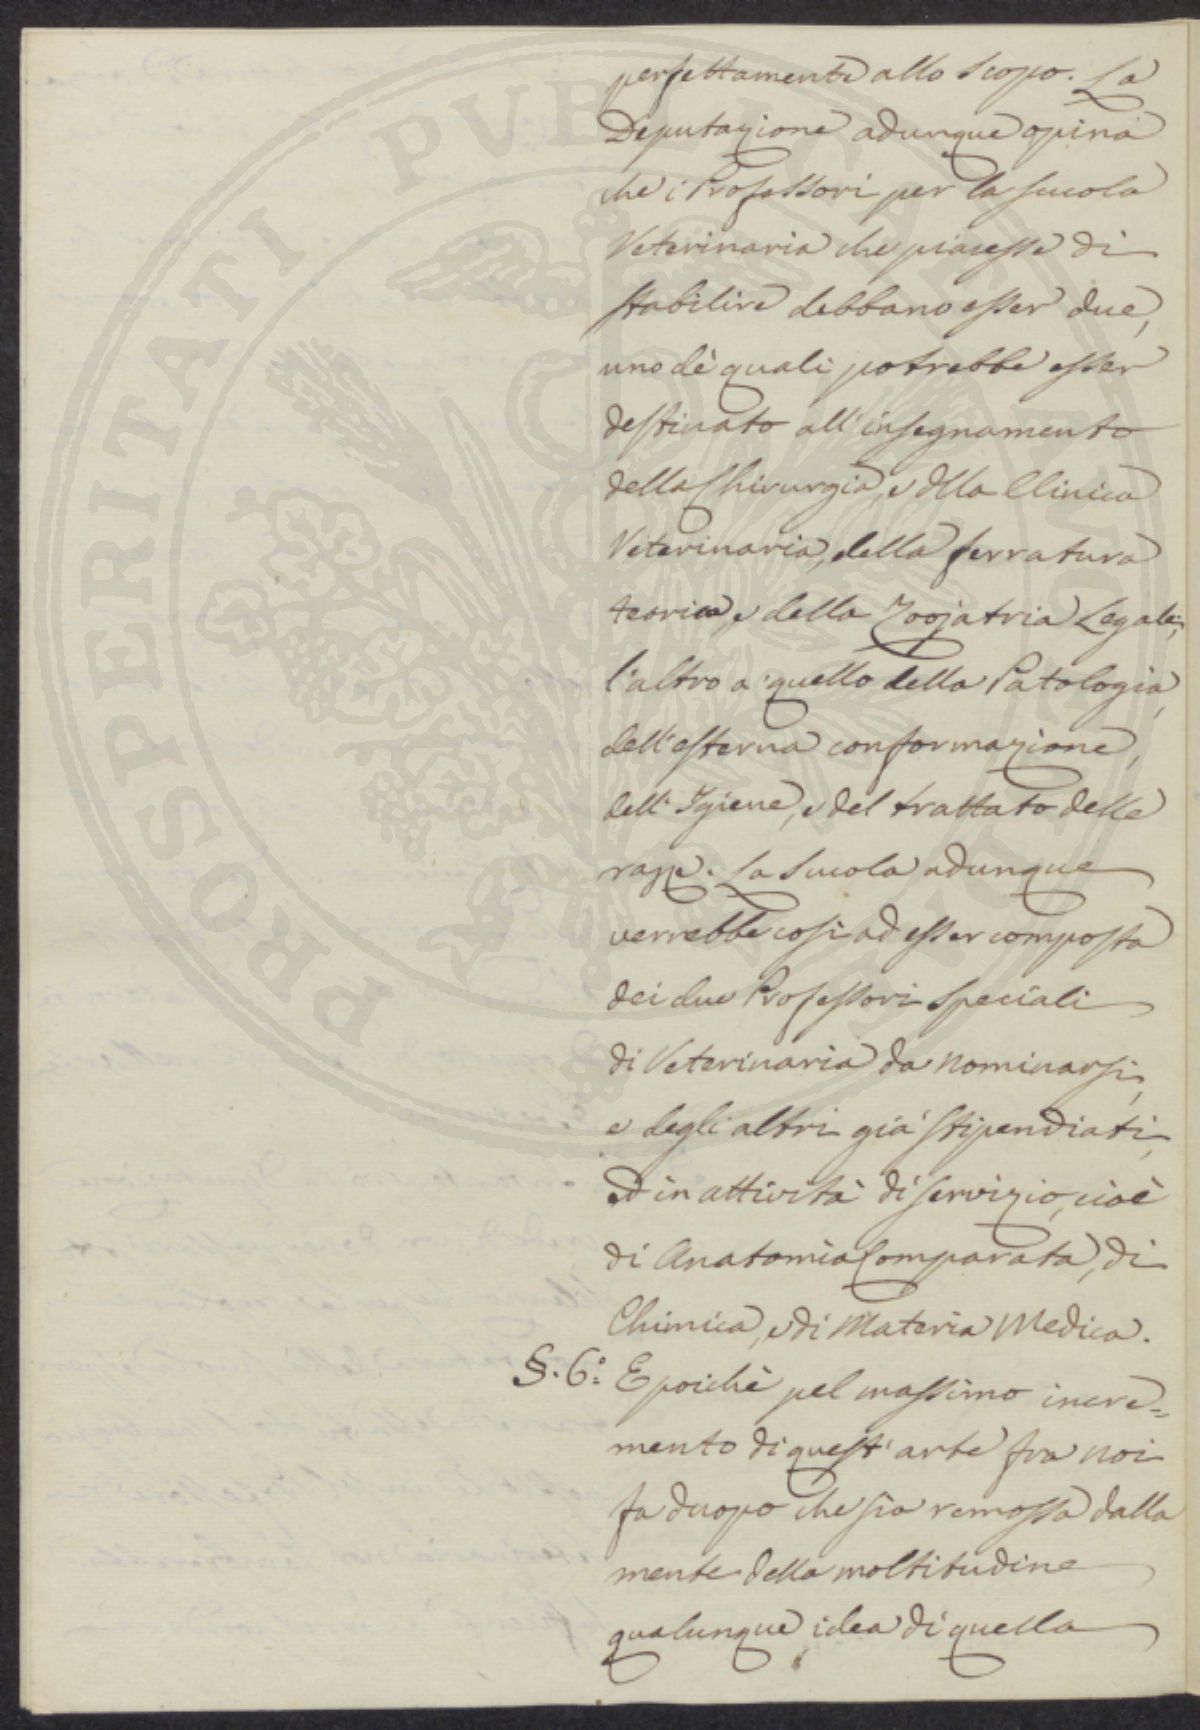 perfettamente allo scopo. La
Deputazione adunque opina
che i Professori per la scuola
Veterinaria che piacesse di
stabilire debbano esser due,
uno de' quali potrebbe esser
destinato all'insegnamento
della Chirurgia, e della Clinica
Veterinaria, della ferratura
teorica, e della Zoojatria Legale;
l'altro a quello della Patologia,
dell'esterna conformazione,
dell'Igiene, e del trattato delle
razze. La Scuola adunque
verrebbe così ad esser composta
dei due Professori speciali
di Veterinaria da nominarsi,
e degli altri già stipendiati,
ed in attività di servizio, cioè
di Anatomia Comparata, di
Chimica, e di Materia Medica.
§. 6.° E poichè pel massimo incre=
mento di quest'arte fra noi
fa duopo che sia remossa dalla
mente della moltitudine
qualunque idea di quella
PROSPERITATI PVBLICAE